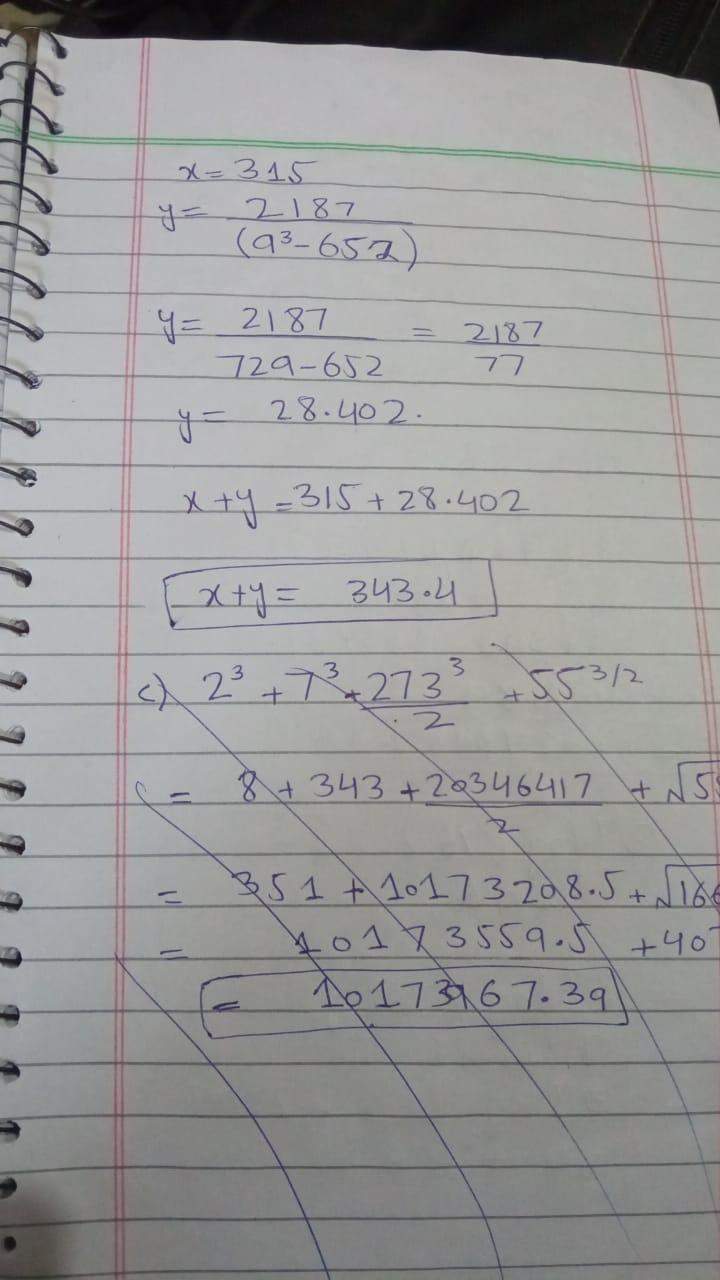 x = 315
y = 2187 / (9³ - 652)
y = 2187 / 729 - 652 = 2187 / 77
y = 28.402.
x + y = 315 + 28.402
x + y = 343.4
c) 2³ + 7³ + 273³ / 2 + 55^3/2
= 8 + 343 + 20346417 / 2 + √5
= 351 + 10173208.5 + √16
= 10173559.5 + 40
= 10173967.39